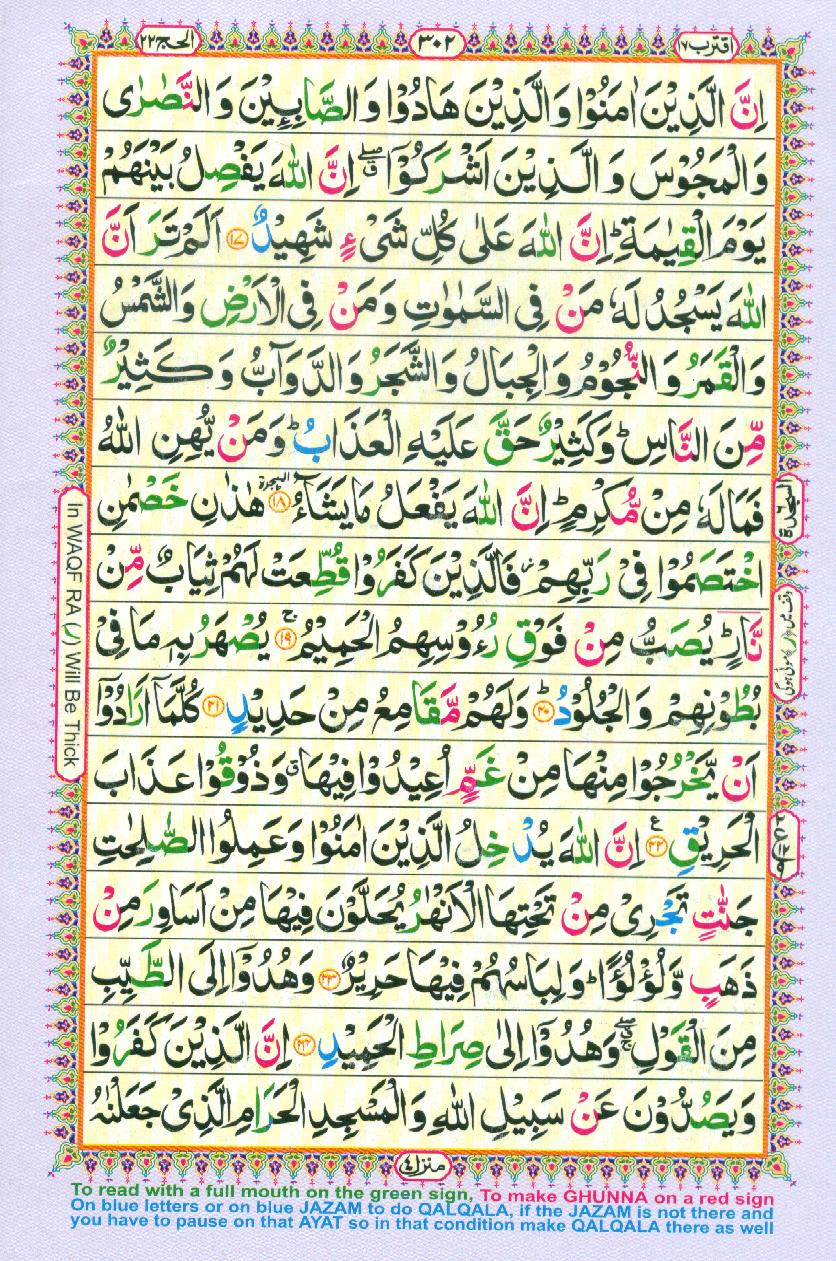 اقترب ۱۷
۳۰۲
الحج ۲۲
اِنَّ الَّذِیْنَ اٰمَنُوْا وَالَّذِیْنَ هَادُوْا وَالصَّابِـِٕیْنَ وَ النَّصٰرٰی
وَالْمَجُوْسَ وَ الَّذِیْنَ اَشْرَكُوْۤا ۖۗ اِنَّ اللّٰهَ یَفْصِلُ بَیْنَهُمْ
یَوْمَ الْقِیٰمَةِ ؕ اِنَّ اللّٰهَ عَلٰی كُلِّ شَیْءٍ شَهِیْدٌ ﴿۱۷﴾ اَلَمْ تَرَ اَنَّ
اللّٰهَ یَسْجُدُ لَهٗ مَنْ فِی السَّمٰوٰتِ وَمَنْ فِی الْاَرْضِ وَالشَّمْسُ
وَالْقَمَرُ وَ النُّجُوْمُ وَالْجِبَالُ وَالشَّجَرُ وَالدَّوَآبُّ وَ كَثِیْرٌ
مِّنَ النَّاسِ ؕ وَكَثِیْرٌ حَقَّ عَلَیْهِ الْعَذَابُ ؕ وَمَنْ یُّهِنِ اللّٰهُ
فَمَا لَهٗ مِنْ مُّكْرِمٍ ؕ اِنَّ اللّٰهَ یَفْعَلُ مَا یَشَآءُ ﴿۱۸﴾ السجدة هٰذٰنِ خَصْمٰنِ
السجدة
اخْتَصَمُوْا فِیْ رَبِّهِمْ ؗ فَالَّذِیْنَ كَفَرُوْا قُطِّعَتْ لَهُمْ ثِیَابٌ مِّنْ
نَّارٍ ؕ یُصَبُّ مِنْ فَوْقِ رُءُوْسِهِمُ الْحَمِیْمُ ﴿۱۹﴾ ۚ یُصْهَرُ بِهٖ مَا فِیْ
بُطُوْنِهِمْ وَ الْجُلُوْدُ ﴿۲۰﴾ ؕ وَلَهُمْ مَّقَامِعُ مِنْ حَدِیْدٍ ﴿۲۱﴾ كُلَّمَاۤ اَرَادُوْۤا
اَنْ یَّخْرُجُوْا مِنْهَا مِنْ غَمٍّ اُعِیْدُوْا فِیْهَا ۗ وَ ذُوْقُوْا عَذَابَ
الْحَرِیْقِ ﴿۲۲﴾ ع اِنَّ اللّٰهَ یُدْخِلُ الَّذِیْنَ اٰمَنُوْا وَ عَمِلُوا الصّٰلِحٰتِ
جَنّٰتٍ تَجْرِیْ مِنْ تَحْتِهَا الْاَنْهٰرُ یُحَلَّوْنَ فِیْهَا مِنْ اَسَاوِرَ مِنْ
ذَهَبٍ وَّلُؤْلُؤًا ؕ وَلِبَاسُهُمْ فِیْهَا حَرِیْرٌ ﴿۲۳﴾ وَهُدُوْۤا اِلَی الطَّیِّبِ
مِنَ الْقَوْلِ ۖۚ وَهُدُوْۤا اِلٰی صِرَاطِ الْحَمِیْدِ ﴿۲۴﴾ اِنَّ الَّذِیْنَ كَفَرُوْا
وَیَصُدُّوْنَ عَنْ سَبِیْلِ اللّٰهِ وَالْمَسْجِدِ الْحَرَامِ الَّذِیْ جَعَلْنٰهُ
منزل ۴
In WAQF RA (ر) Will Be Thick
To read with a full mouth on the green sign, To make GHUNNA on a red sign
On blue letters or on blue JAZAM to do QALQALA, if the JAZAM is not there and
you have to pause on that AYAT so in that condition make QALQALA there as well